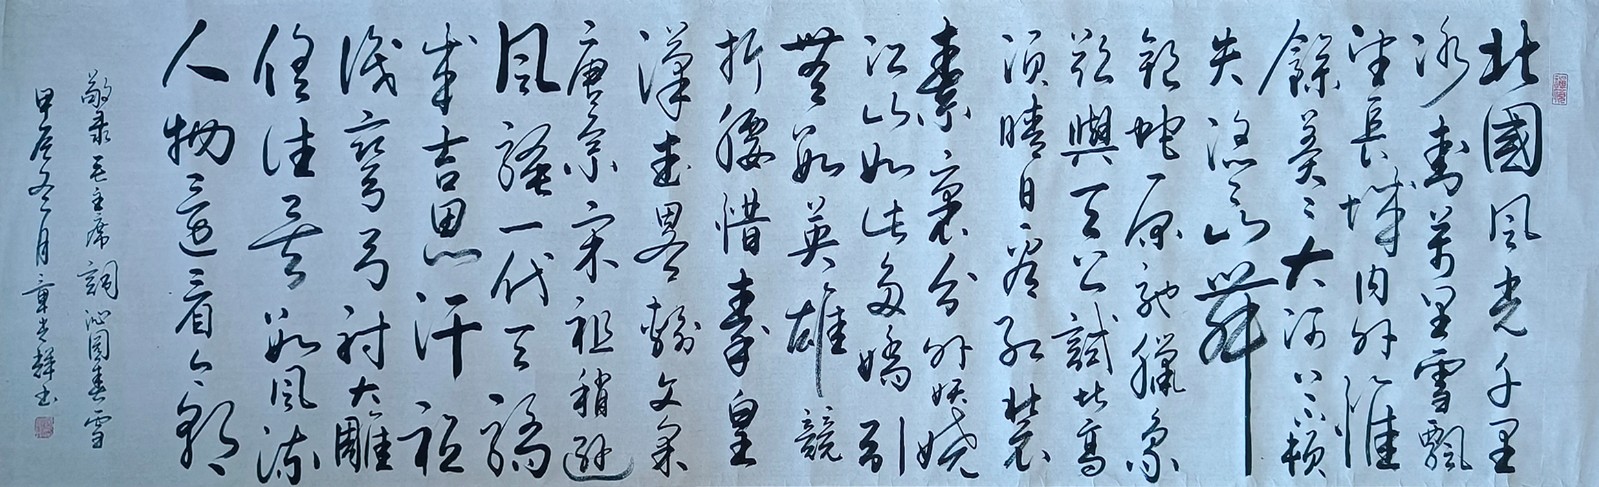 北國風光千里
冰封萬里雪飄
望長城內外惟
餘莽〻大河上下頓
失滔〻山舞
銀蛇原馳臘象
欲與天公試比高
須晴日看紅裝
素裹分外妖嬈
江山如此多嬌引
無數英雄競
折腰惜秦皇
漢武略輸文采
唐宗宋祖稍遜
風騷一代天驕
成吉思汗祗
識彎弓射大雕
俱往矣數風流
人物還看今朝
敬录毛主席詞沁園春雪
甲辰冬月章光輝書